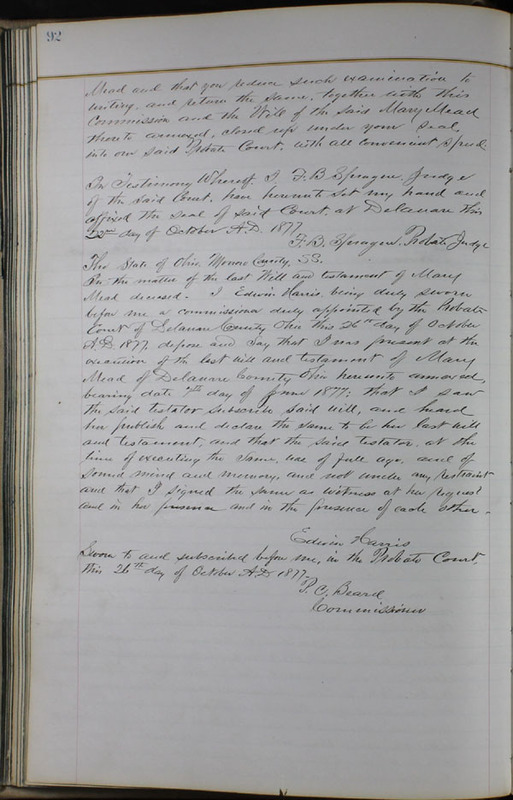 92
Mead and that you reduce such examination to
writing, and return the same, together with this
Commission and the Will of the said Mary Mead
thereto annexed, closed up under your seal,
into our said Probate Court, with all convenient speed
In Testimony Whereof, I F. B. Sprague, Judge
of the said Court, have hereunto set my hand and
affixed the seal of said Court, at Delaware this
day of October A.D. 1877
F. B. Sprague, Probate Judge
The State of Ohio, Monroe County, SS.
In the matter of the last Will and testament of Mary
Mead deceased. I Edwin Harris, being duly sworn
before me a commissioner duly appointed by the Probate
Court of Delaware County Ohio this 26th day of October
A.D. 1877, depose and say that I was present at the
execution of the last will and testament of Mary
Mead of Delaware County Ohio hereunto annexed,
bearing date 7th day of June 1877; that I saw
the said testator subscribe said will, and heard
her publish and declare the same to be her last will
and testament, and that the said testator, at the
time of executing the same, was of full age, and of
sound mind and memory, and not under any restraint
and that I signed the same as witness at her request
and in her presence and in the presence of each other.
Edwin Harris
Sworn to and subscribed before me, in the Probate Court,
this 26th day of October A.D. 1877.
P. C. Beard
Commissioner